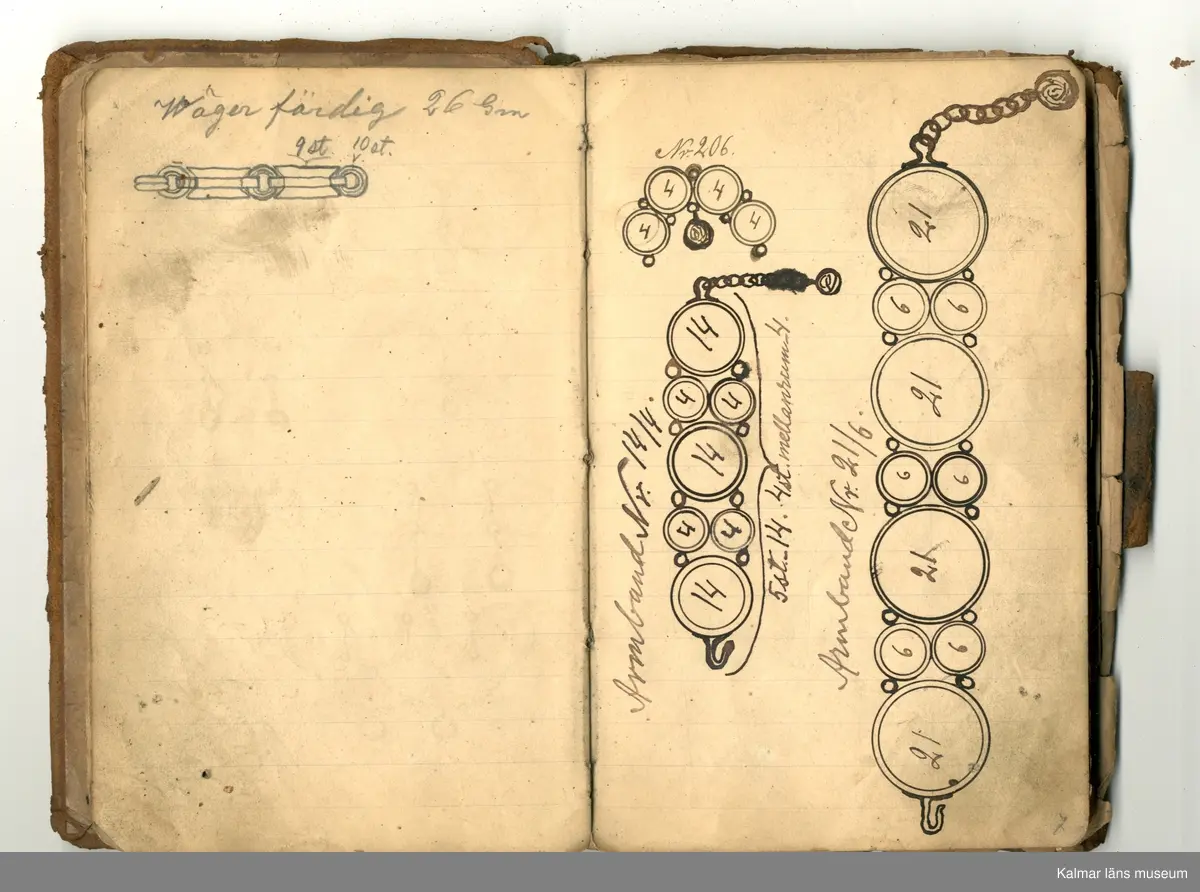 Wäger färdig 26 Gm
9st. 10st.
Nr. 206.
4 4
4 4
Armband Nr. 14/4.
14
4 4
14
4 4
14
5 st. 14. 4st. mellanrum 4.
Armband Nr. 21/6.
21
6 6
21
6 6
21
6 6
21
Kalmar läns museum